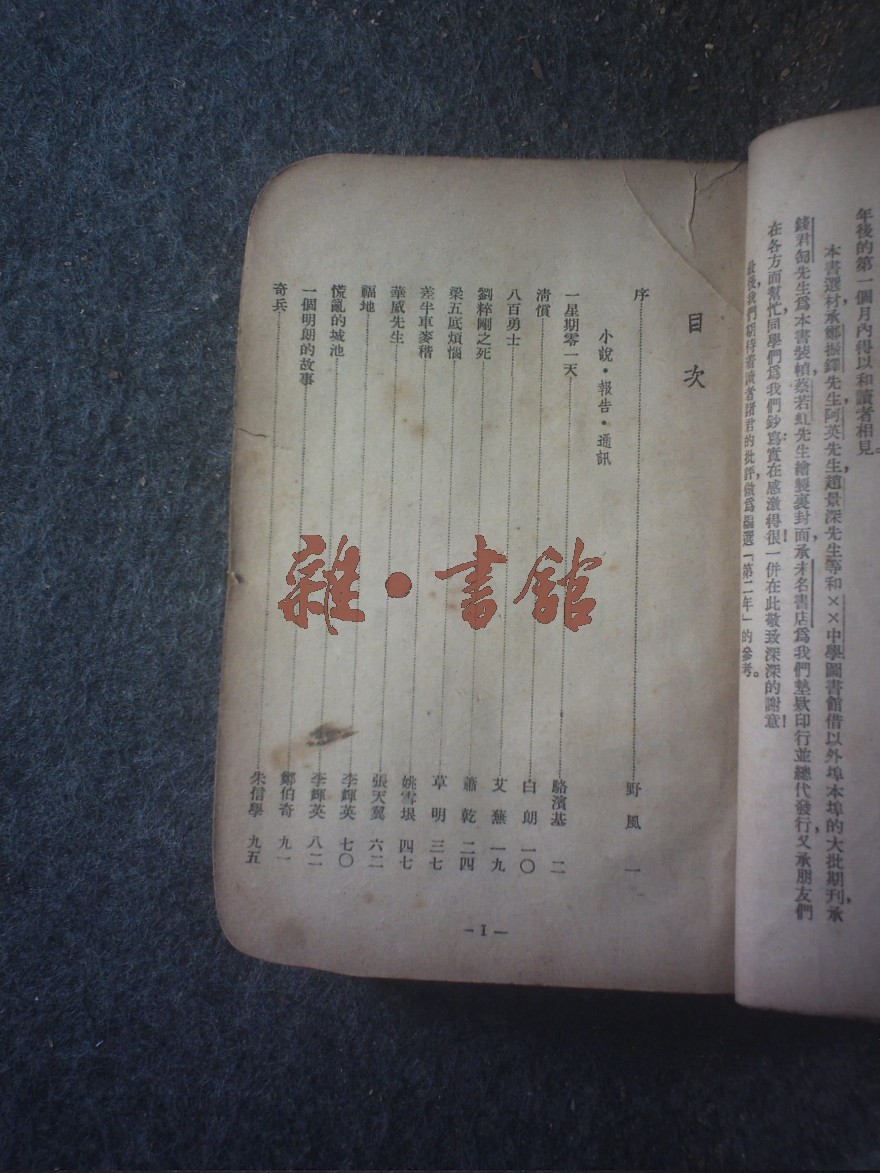 年後的第一個月內得以和讀者相見。
本書選材承鄭振鐸先生,阿英先生,趙景深先生等和××中學圖書館借以外埠本埠的大批期刊,承
錢君匋先生為本書裝幀,蔡若虹先生繪製裏封面,承未名書店為我們墊欵印行並總代發行,又承朋友們
在各方面幫忙,同學們為我們鈔寫,實在感激得很!一併在此敬致深深的謝意!
最後,我們期待着讀者諸君的批評,做為編選「第二年」的參考。
目次
序 野風 一
小說·報告·通訊
一星期零一天 駱濱基 二
清償 白朗 一〇
八百勇士 艾蕪 一九
劉粹剛之死 蕭乾 二四
梁五底煩惱 草明 三七
差半車麥稭 姚雪垠 四七
華威先生 張天翼 六二
福地 李輝英 七〇
慌亂的城池 李輝英 八二
一個明朗的故事 鄭伯奇 九一
奇兵 朱信學 九五
—I—
雜·書館